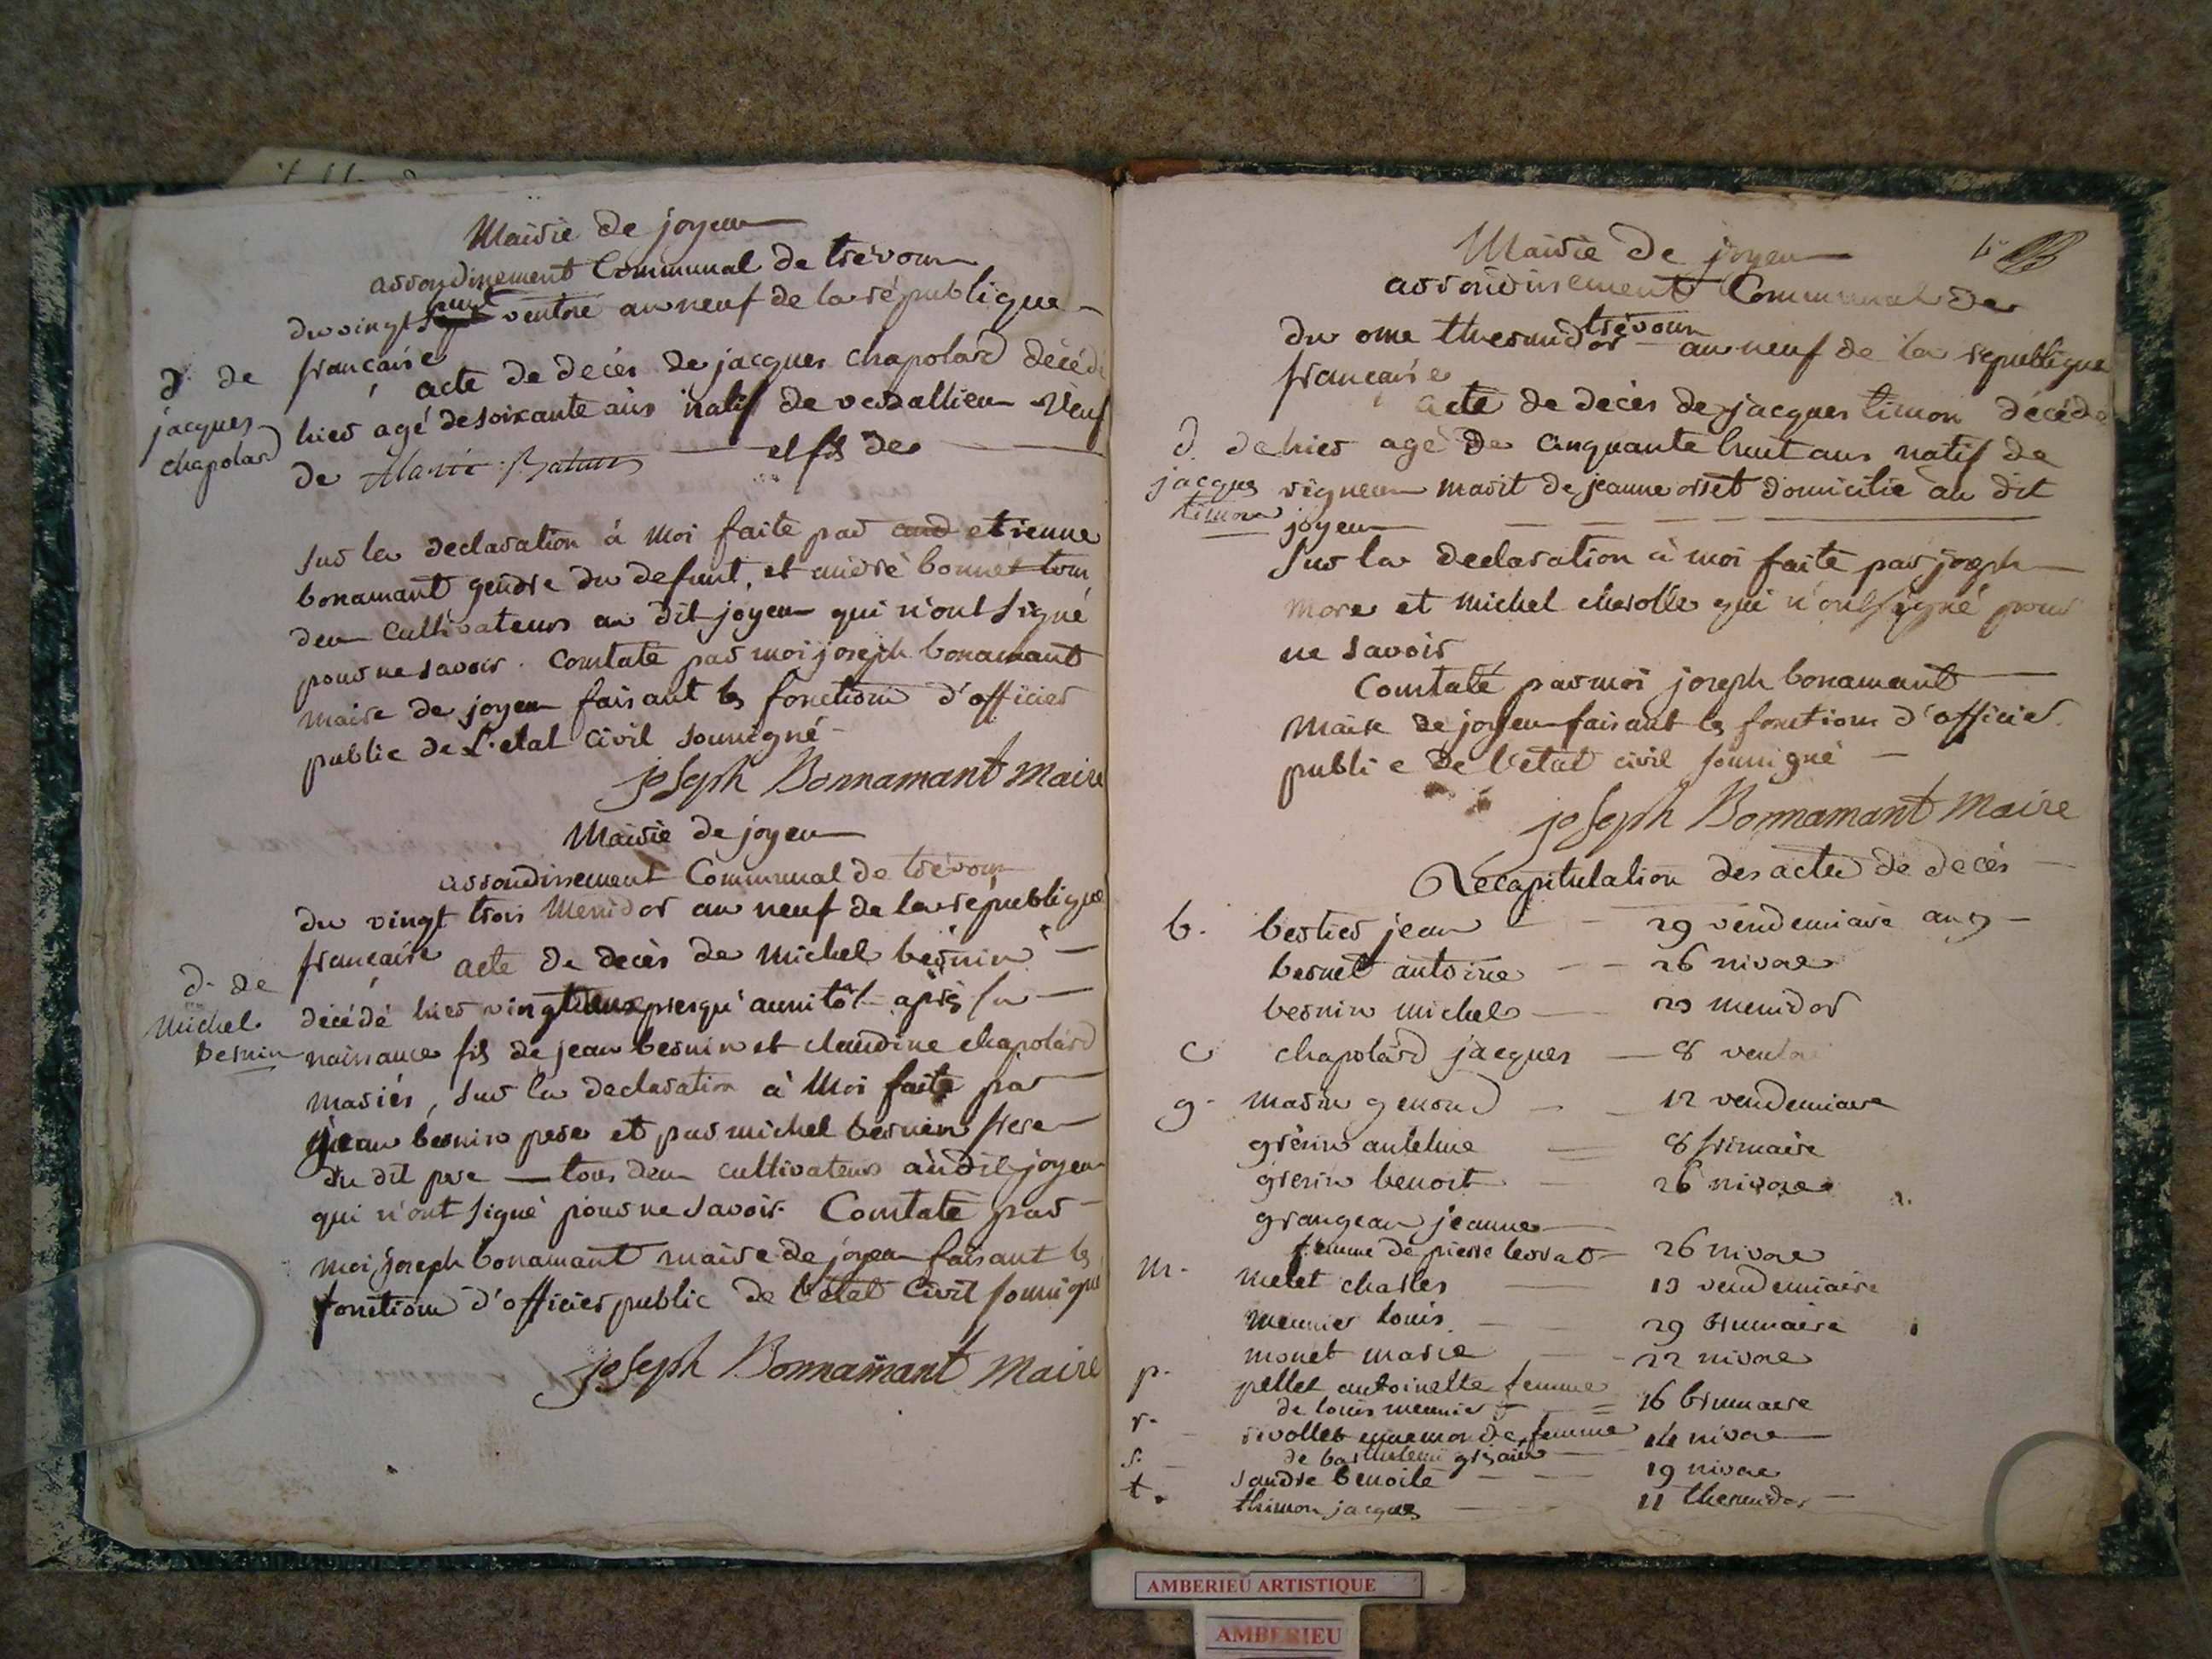 Mairie de joyeu
arrondissement Communal de trevoux
du vingt huit ventre an neuf de la république
française
acte de decés de jacques chapolard décédé
d. de
jacques
chapolard
hier agé de soixante ans natif de versallieu veuf
de Marie et fils de
Sur la declaration à moi faite par and etienne
bonamant gendre du defunt, et andré bonnet tous
deux Cultivateurs au dit joyeu qui n'ont signé
pour ne savoir. Constaté par moi joseph bonamant
maire de joyeu faisant les fonctions d'officier
public de L'etat civil soussigné
joseph Bonnamant Maire
Mairie de joyeu
arrondissement Communal de trevoux
du vingt trois Messidor an neuf de la république
française acte de decès de michel bernin
d. de
Michel
bernin
décédé hier vingt deux presqu'aussitôt après sa
naissance fils de jean bernin et claudine chapolard
mariés, Sur la declaration à Moi faite par
jean bernin pere et par michel bernin frere
du dit pere tous deux cultivateurs au dit joyeu
qui n'ont signé pour ne savoir. Constaté par
moi joseph bonamant maire de joyeu faisant les
fonctions d'officier public de l'état Civil soussigné
joseph Bonnamant Maire
Mairie de joyeu
arrondissement Communal de
trévoux
du onze thermidor an neuf de la republique
française
acte de decès de jacques timon décédé
d. de
jacques
timon
hier agé de cinquante huit ans natif de
vigneux marit de jeanne orset domicilié au dit
joyeu
Sur la declaration à moi faite par joseph
more et michel cherolle qui n'ont signé pour
ne savoir
Constaté par moi joseph bonamant
maire de joyeu faisant les fonctions d'officier
public de l'état civil soussigné
joseph Bonnamant Maire
Récapitulation des actes de decès
b. bertier jean 29 vendemiaire an 9
bernet antoine 26 nivose
bernin michel 23 messidor
c chapolard jacques 8 ventose
g. marin genoud 12 vendemiaire
grérin antelme 8 frimaire
grerin benoit 26 nivose
grangean jeanne
femme de pierre 26 nivose
m. melet charles 13 vendemiaire
meunier louis 29 brumaire
monet marie 22 nivose
p. pellet antoinette femme
de louis meunier 16 brumaire
r. rivollet ennemonde femme
de barthelemi 14 nivose
s. sandre benoite 19 nivose
t. thimon jacques 11 thermidor
AMBERIEU ARTISTIQUE
AMBERIEU